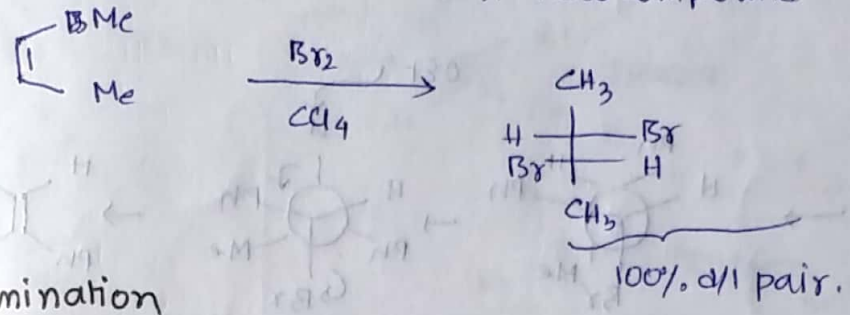 Me
Me
Br2
CCl4
CH3
H Br
Br H
CH3
100% d/l pair.
mination